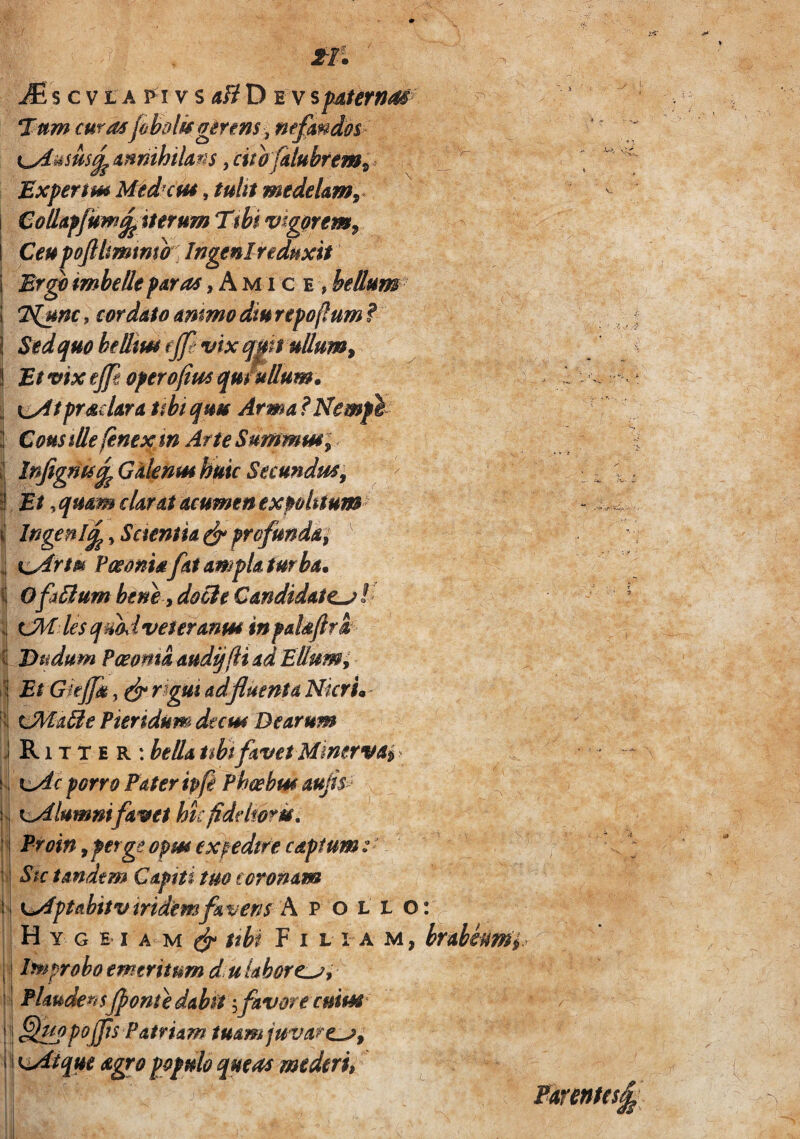 21.
ÆSCVLAPIVS ast DEVS paternas
Tum curas sobolis gerens, nefandos
Ausúsq; annihilans, citò salubrem,
Expertus Medicus, tulit medelam,
Collapsumq; iterum Tibi vigorem,
Ceu postliminio IngenI reduxit
Ergò imbelle paras, AMICE, bellum
Nunc, cordato animo diu repostum?
Sed quo bellius esse vix quit ullum,
Et vix esse operosius qui ullum.
At præclara tibi quæ Arma? Nempè
Cous ille senex in Arte Summus,
Insignisq; Galenus huic Secundus,
Et, quam clarat acumen expolitum
IngenIq;, Scientia & profunda,
Artis Pæoniæ sat ampla turba.
O factum benè, docte Candidate!
Miles quòd veteranus in palæstrâ
Dudum Pæoniâ audijsti ad Ellum,
Et Giessæ, & rigui adfluenta Nicri.
Macte Pieridum decus Dearum
RITTER: bella tibi favet Minerva,
Ac porro Pater ipse Phœbus ausis
Alumni favet hîc fidelioris.
Proin, perge opus expedire captum:
Sic tandem Capiti tuo coronam
Aptabit viridem favens APOLLO:
HYGEIAM & tibi FILIAM, brabéum,
Improbo emeritum diu labore,
Plaudens sponte dabit; favore cuius
Quo possis Patriam tuam juvare,
Atque ægro populo queas mederi,
Parentesq;